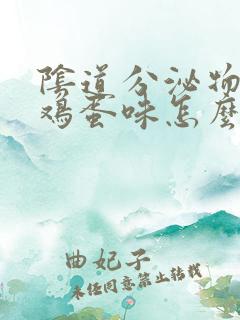 陰道分泌物
鸡蛋味怎麼
曲妃子
未经同意禁止转载